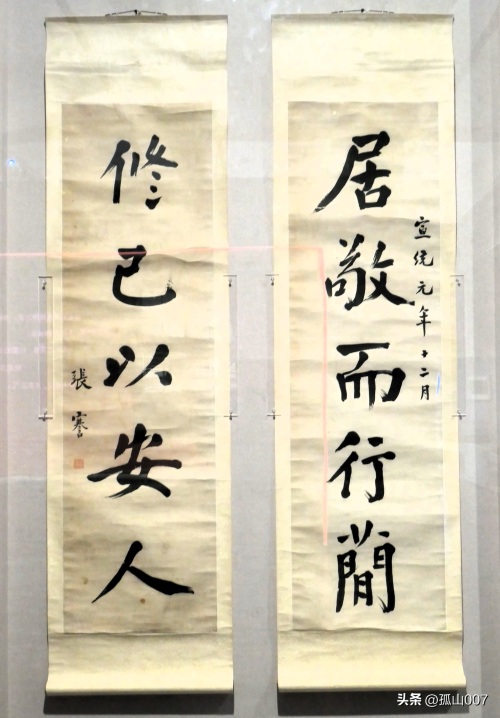 居敬而行簡
宣統元年十二月
修己以安人
張謇
头条 @孤山007